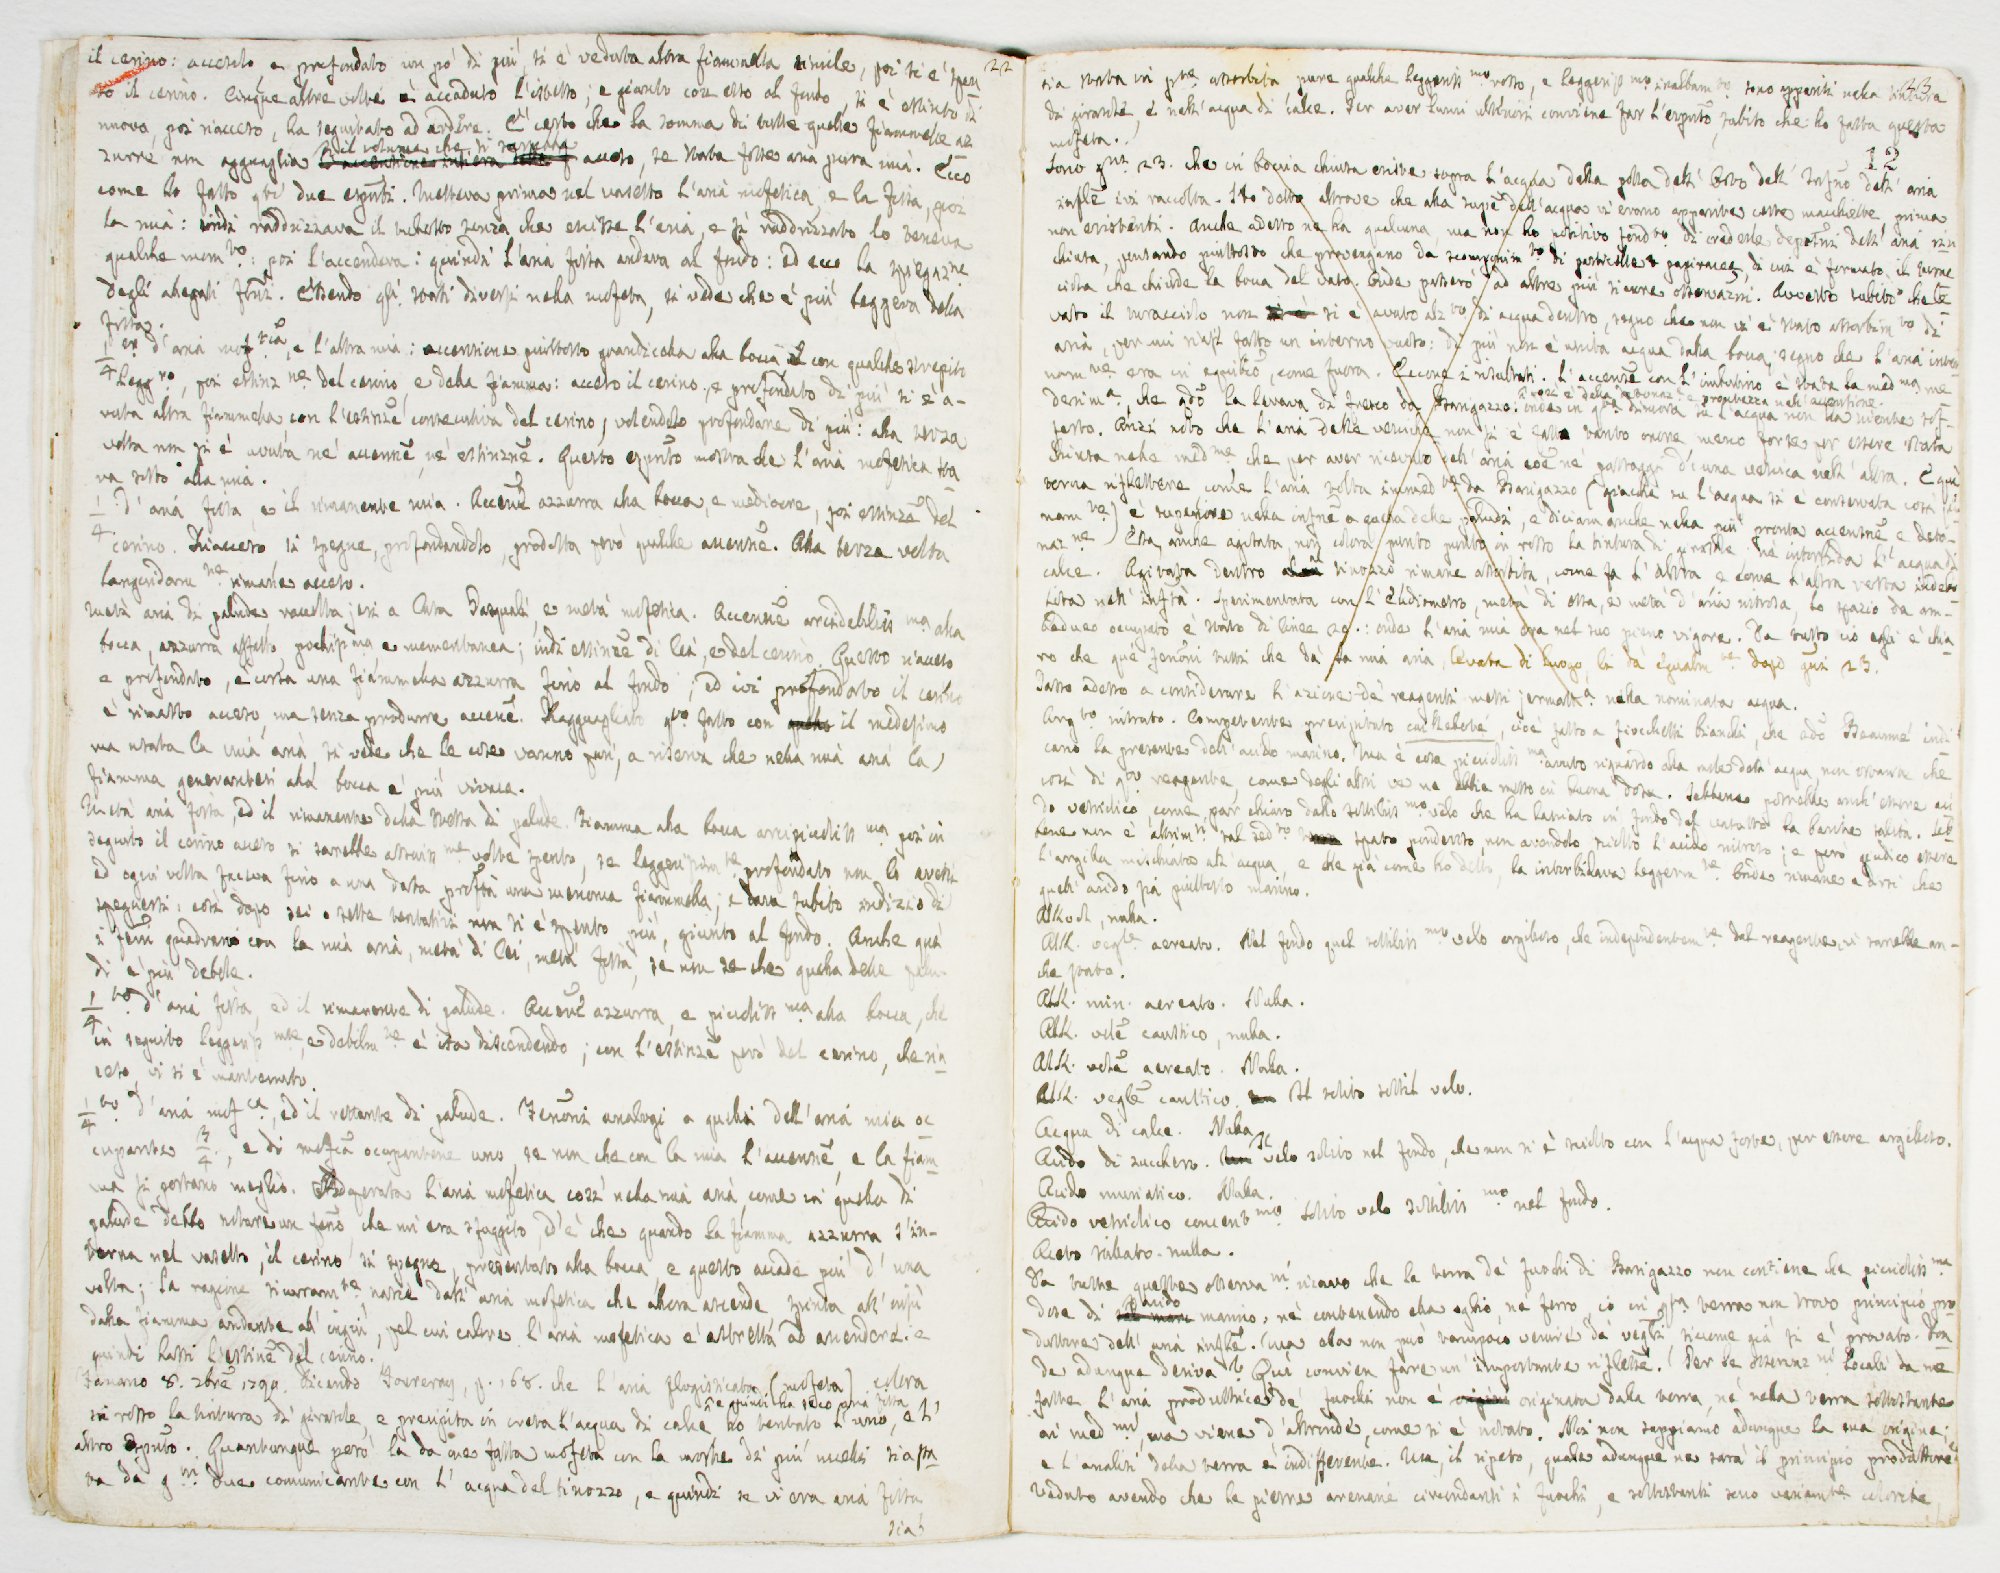 il cerino: acceso, e profondato un pò di più, si è veduta altra fiammella simile, poi si è spen
22
to il cerino. Cinque altre volte è accaduto l'istesso; e giunto con esso al fondo, si è estinto di
nuovo, poi riacceso, ha seguitato ad ardere. È certo che la somma di tutte quelle fiammelle az
zurre non agguaglia il volume che si sarebbe acceso, se stata fosse aria pura mia. Ecco
come ho fatto qti due espti. Metteva prima nel vasetto l'aria mofetica, e la fissa, poi
la mia: indi raddrizzava il vasetto senza che uscisse l'aria, e sì raddrizzato lo teneva
qualche momto: poi l'accendeva: quindi l'aria fissa andava al fondo: ed ecco la spiegazne
degli allegati fenni. Essendo gli stati diversi nella mofeta, si vede che è più leggera della
fissa.
1/4 d'aria moftica, e l'altra mia: accensione piuttosto grandicella alla bocca con qualche strepito
legg, poi estinzne del cerino, e della fiamma: acceso il cerino, e profondato di più si è a-
vuta altra fiammella con l'estinze consecutiva del cerino, volendolo profondare di più: alla terza
volta non si è avuta nè accenne, nè estinzne. Questo espto mostra che l'aria mofetica sta
va sotto alla mia.
1/4 d'aria fissa, e il rimanente mia. Accene azzurra alla bocca, e mediocre, poi estinze del
cerino. Riacceso si spegne, profondandolo, prodotta però qualche accenne. Alla terza volta
languidamne rimane acceso.
Metà aria di palude raccolta jeri a Ca Pasquali, e metà mofetica. Accensne arcidebolissma alla
bocca, azzurra affatto pochissma e momentanea; indi estinze di lei, e del cerino. Questo riacceso
e profondato, è corsa una fiammella azzurra fino al fondo; ed ivi profondato il cerino
è rimasto acceso, ma senza produrre accene. Ragguagliato qto fatto con il medesimo
ma usata la mia aria, si vede che le cose vanno pari, a riserva che nella mia aria la
fiamma generantesi alla bocca è più vivace.
Metà aria fissa, ed il rimanente della stessa di palude. Fiamma alla bocca arcipiccolissma poi in
seguito il cerino acceso si sarebbe moltissme volte spento, se leggermente profondato non lo avessi
ed ogni volta faceva fino a una data proftà una menoma fiammella; e dava subito indizio di
spegnersi: così dopo sei o sette tentativi non si è spento più, giunto al fondo. Anche quà
i feni quadrano con la mia aria, metà di lei, metà fissa, se non se che quella delle palu-
di è più debole.
1/4 to d'aria fissa, ed il rimanente di palude. Accene azzurra, e piccolissma alla bocca, che
in seguito leggeriss mte, e debilmte è ita discendendo; con l'estinze però del cerino, che ria
ceso, vi si è mantenuto.
1/4 to d'aria mofca, ed il restante di palude. Fenoni analogi a quelli dell'aria mia oc
cupante 3/4, e di mofca occupantene uno, se non che con la mia l'accenne, e la fiam
ma si portano meglio. Adoperata l'aria mofetica così nella mia aria, come in quella di
palude debbo notare un feno, che mi era sfuggito, ed è che quando la fiamma azzurra s'in-
terna nel vasetto, il cerino si spegne, presentato alla bocca, e questo accade più d'una
volta; la ragione sicuramte nasce dall'aria mofetica che allora ascende spinta all'insù
dalla fiamma andante all'ingiù, pel cui calore l'aria mofetica è astretta ad ascendere: e
quindi hassi l'estine del cerino.
Fanano 8. 7bre 1790. Dicendo Fourcroy, p. 168. che l'aria flogisticata (mofeta) colora
in rosso la tintura di girasole, e precipita in creta l'acqua di calce ho tentato l'uno, e l'
altro espto. Quantunque però la da me fatta mofeta con la morte di più uccelli sia sta
ta da gni due comunicante con l'acqua del tinozzo, e quindi se vi era aria fissa
sia
sia stata in pte assorbita pure qualche leggeriss mo rosso, e leggeriss mo inalbam to sono apparsi nella tintura
di girasole, e nell'acqua di calce. Per aver lumi ulteriori conviene far l'espto, subito che ho fatta questa
mofeta.
12
Sono gni 23. che in boccia chiusa esiste sopra l'acqua della polla dell' orto dell' aria
infle ivi raccolta. Ho detto altrove che alla supe dell'acqua vi erano apparite certe macchiette prima
non esistenti. Anche adesso ne ha qualcuna, ma non ho positivo fondto di crederle deposzni dell'aria rin
chiusa, pensando piuttosto che provengano da scomponimto di particelle papiracee, di cui è formato il turac
ciolo che chiude la bocca del vaso. Onde passerò ad altre più sicure osservazni. Avverto subito che le
vato il turacciolo non si è avuto alzto di acqua dentro, segno che non vi è stato assorbimto di
aria, per cui siasi fatto un interno vuoto: di più non è uscita acqua dalla bocca, segno che l'aria inter
namte era in equibrio, come fuora. Eccone i risultati. L'accenze con l'imbutino è stata la medma me
desima, che qdo la levava di fresco da Barigazzo: onde in qta dimora su l'acqua non ha niente sof-
ferto. Anzi noto che l'aria delle vesciche non si è fatta tanto onore meno forte per essere stata
chiusa nelle medme che per aver ricevuto dell'aria coe nè passaggi d'una vescica nell'altra. E qui
torna riflettere come l'aria tolta immedte da Barigazzo (giacchè su l'acqua si è conservata così
namte) è superiore nella infne a quella delle paludi, e diciam anche nella più pronta accensne e deto-
nazne. Essa, anche agitata, non colora punto punto in rosso la tintura di girasole, nè intorbida l'acqua di
calce. Agitata dentro al tinozzo rimane assorbita, come fa l'altra e come l'altra resta indebo
lita nell'inftà. Sperimentata con l'Eudiometro, metà di essa, e metà d'aria nitrosa, lo spazio da am-
bedue occupato è stato di linee 29.: onde l'aria mia era nel suo pieno vigore. Da tutto ciò egli è chia
ro che què fenoni tutti che dà la mia aria, levata di luogo, li dà egualmte dopo gni 23.
Passo adesso a considerare l'azione de' reagenti messi jermattna nella nominata acqua.
Argto nitrato. Competente precipitato caillebotté, cioè fatto a fiocchetti bianchi, che qdo Beaumé indi
cano la presenza dell'acido marino. Ma è cosa piccoliss ma avuto riguardo alla mole dell'acqua, non ostante che
così di qto reagente, come degli altri ve ne abbia messo in buona dose. Sebbene potrebbe anch'essere aci
do vetriolico come par chiaro dallo sottiliss mo velo che ha lasciato in fondo del vasetto la barite salita. Seb
bene non è altrimti tal sedto spato pondoroso non avendolo sciolto l'acido nitroso; e però giudico essere
l'argilla mischiata all'acqua, e che già come ho detto, la intorbidava leggermte. Onde rimane a dirsi che
quell'acido sia piuttosto marino.
Alkool, nulla.
Alk. vegle aereato. Nel fondo quel sottiliss mo velo argilloso, che independentemte dal reagente vi sarebbe an-
che stato.
Alk. min. aereato. Nulla.
Alk. vole caustico, nulla.
Alk. vole aereato. Nulla.
Alk. vegle caustico. Il solito sottil velo.
Acqua di calce. Nulla.
Acido di zucchero. Il velo solito nel fondo, che non si è sciolto con l'acqua forte, per essere argilloso.
Acido muriatico. Nulla.
Acido vetriolico concent mo. Solito velo sottiliss mo nel fondo.
Aceto stillato. nulla.
Da tutte queste osserva ni ricavo che la terra de' fuochi di Barigazzo non contiene che piccoliss ma
dose di acido marino, nè contenendo ella oglio, nè ferro io in qta terra non trovo principio pro
duttore dell'aria infle. Ma ella non può tampoco venire da vegli siccome già si è provato. Don
de adunque deriva? Quì convien fare un'importante riflesse. Per le osservaz ni locali da me
fatte l'aria produttrice de' fuochi non è originata dalla terra, nè nella terra sottostante
ai med mi, ma viene d'altronde, come si è notato. Noi non sappiamo adunque la sua origine;
e l'analisi della terra è indifferente. Ma, il ripeto, quale adunque ne sarà il principio produttore?
Veduto avendo che le pietre arenarie circondanti i fuochi, e sottostanti sono variamte colorite,